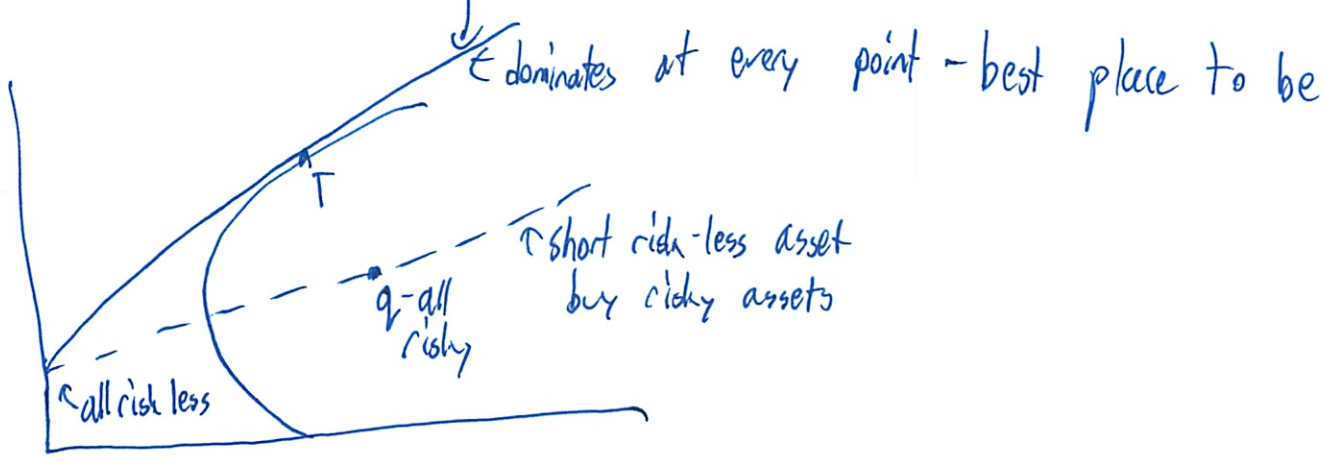 dominates at every point - best place to be
T
short risk-less asset
buy risky assets
q-all
risky
all risk less